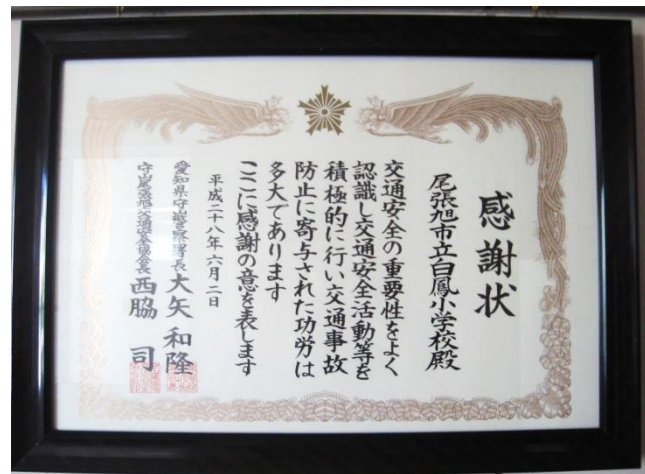 感謝状
尾張旭市立白鳳小学校殿
交通安全の重要性をよく
認識し交通安全活動等を
積極的に行い交通事故
防止に寄与された功労は
多大であります
ここに感謝の意を表します
平成二十八年六月二日
愛知県守山警察署長 大矢 和隆
守山尾張旭交通安全協会長 西脇 司